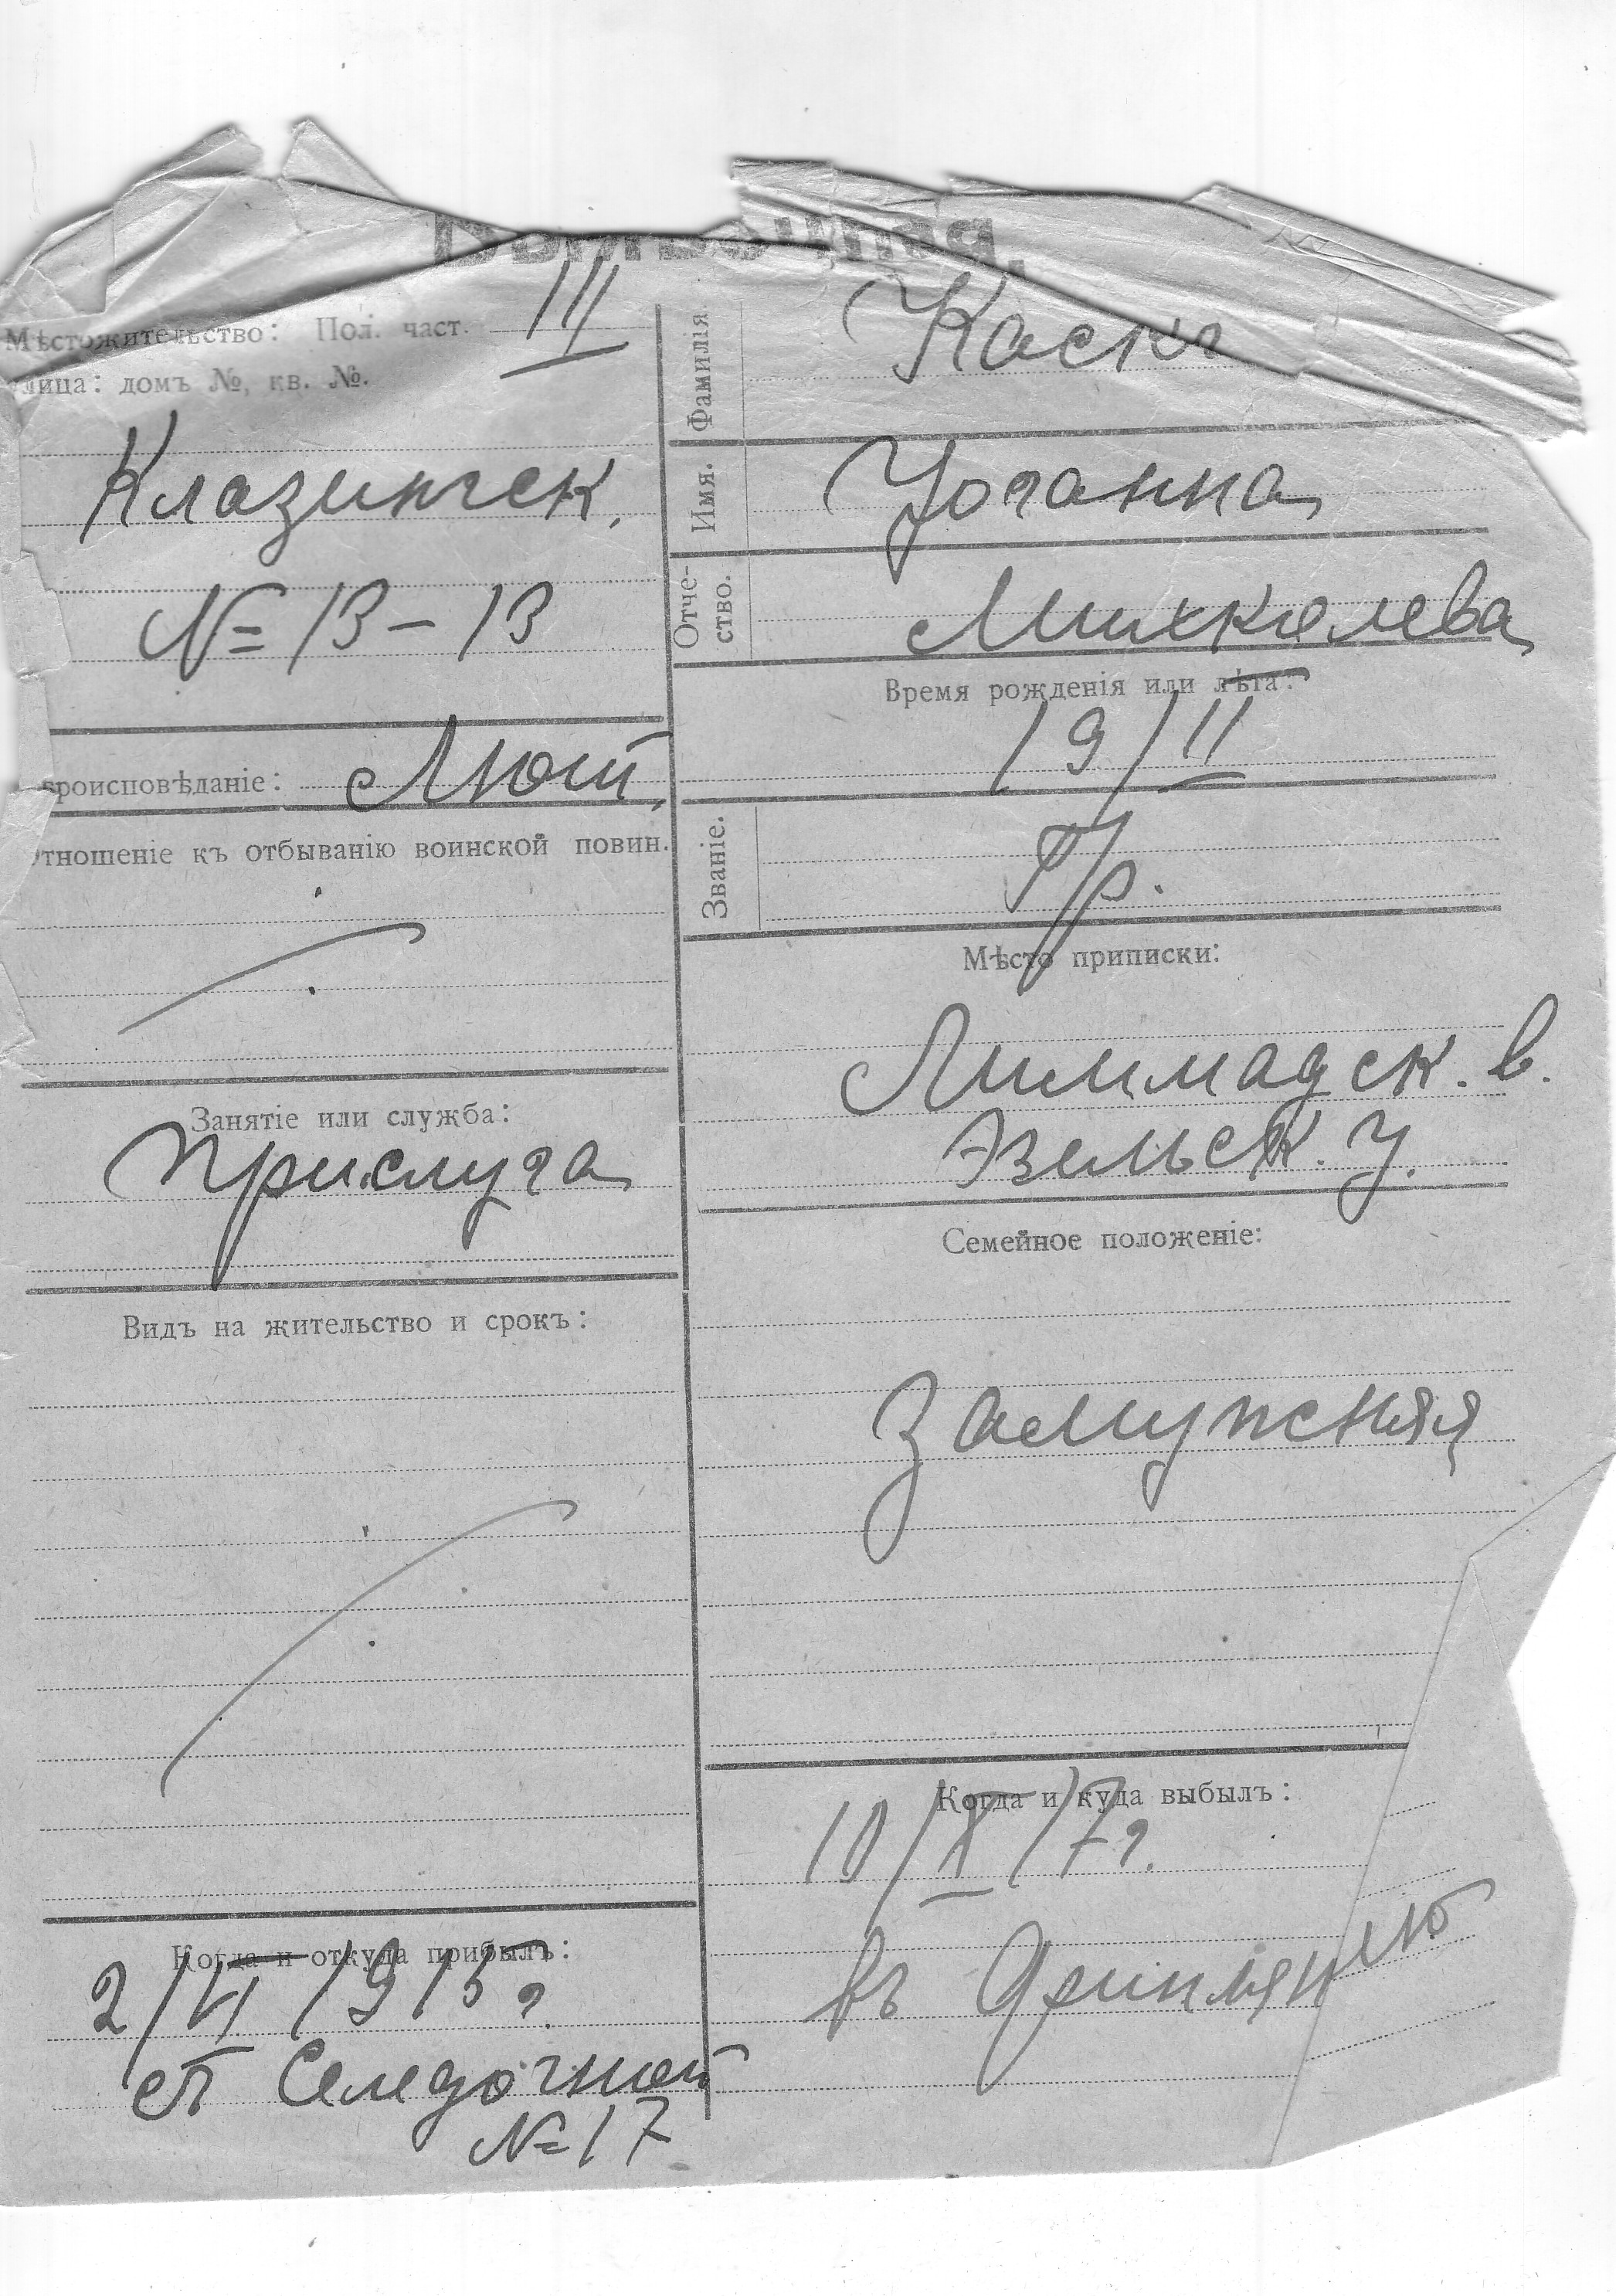 Мѣстожительство: Пол. част. III
лица: домъ №, кв. №.
Клазингск.
№ 13 – 13
роисповѣданіе: Лют.
тношеніе къ отбыванію воинской повин.
Занятіе или служба:
Прислуга
Видъ на жительство и срокъ:
Когда и откуда прибылъ:
2/VI 1915 г.
съ Селедочной
№ 17
Фамилія Каскъ
Имя. Иоганна
Отче-
ство. Михкелева
Время рожденія или лѣта:
19/II
Званіе. Кр.
Мѣсто приписки:
Лиммадск. в.
Эзельск. у.
Семейное положеніе:
Замужняя
Когда и куда выбылъ:
10/X 17 г.
въ